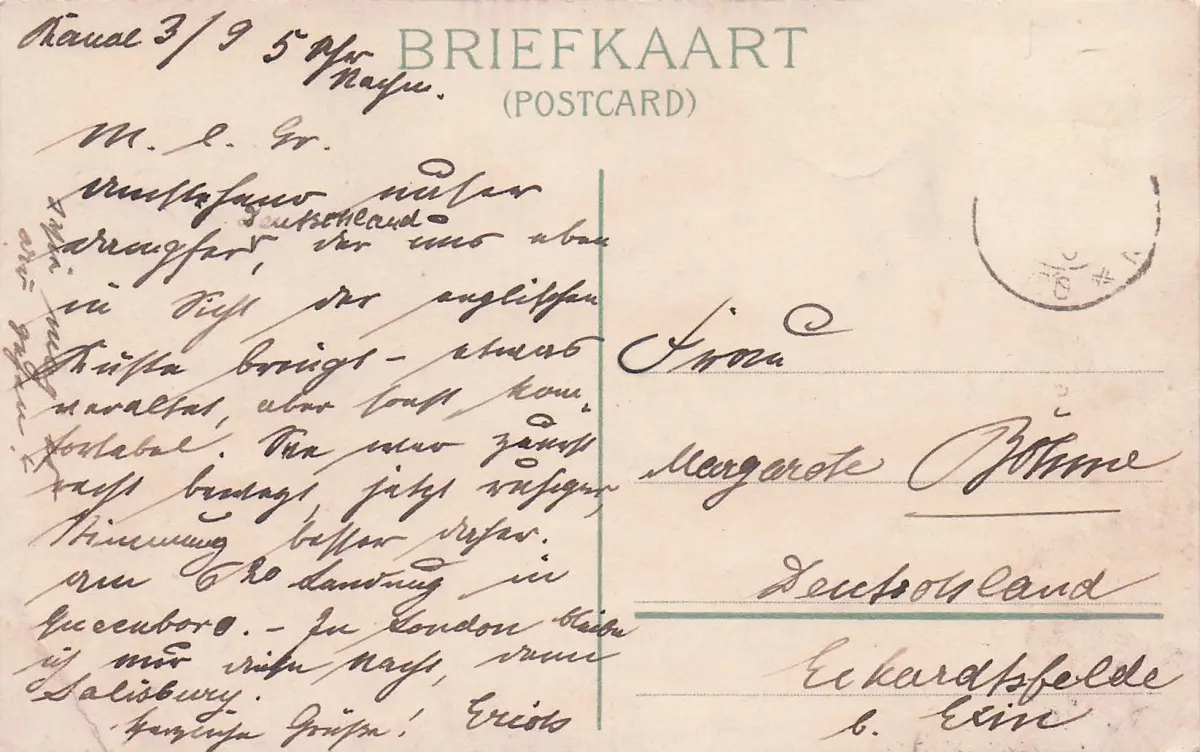 Kanal 3/9 5 Uhr
Nachm.
BRIEFKAART
(POSTCARD)
M. l. Gr.
Umstehend unser
Dampfer, Deutschland
der uns eben
in Sicht der englischen
Küste bringt – etwas
veraltet, aber sonst kom-
fortabel. See war zuerst
recht bewegt, jetzt ruhiger,
Stimmung besser daher.
Um 6 20 Landung in
Queenboro. – In London bleibe
ich nur diese Nacht, dann
Salisbury.
Herzliche Grüße! Erich
Frau
Margarete Böhme
Deutschland
Eckardtsfelde
b. Exin